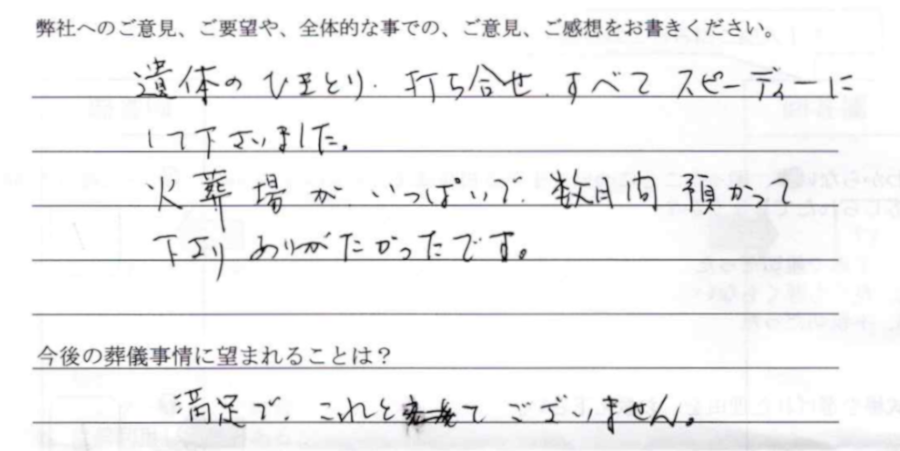 弊社へのご意見、ご要望や、全体的な事での、ご意見、ご感想をお書きください。
遺体のひきとり、打ち合せ、すべてスピーディーに
して下さいました。
火葬場がいっぱいで、数日間預かって
下さりありがたかったです。
今後の葬儀事情に望まれることは？
満足で これと てございません。